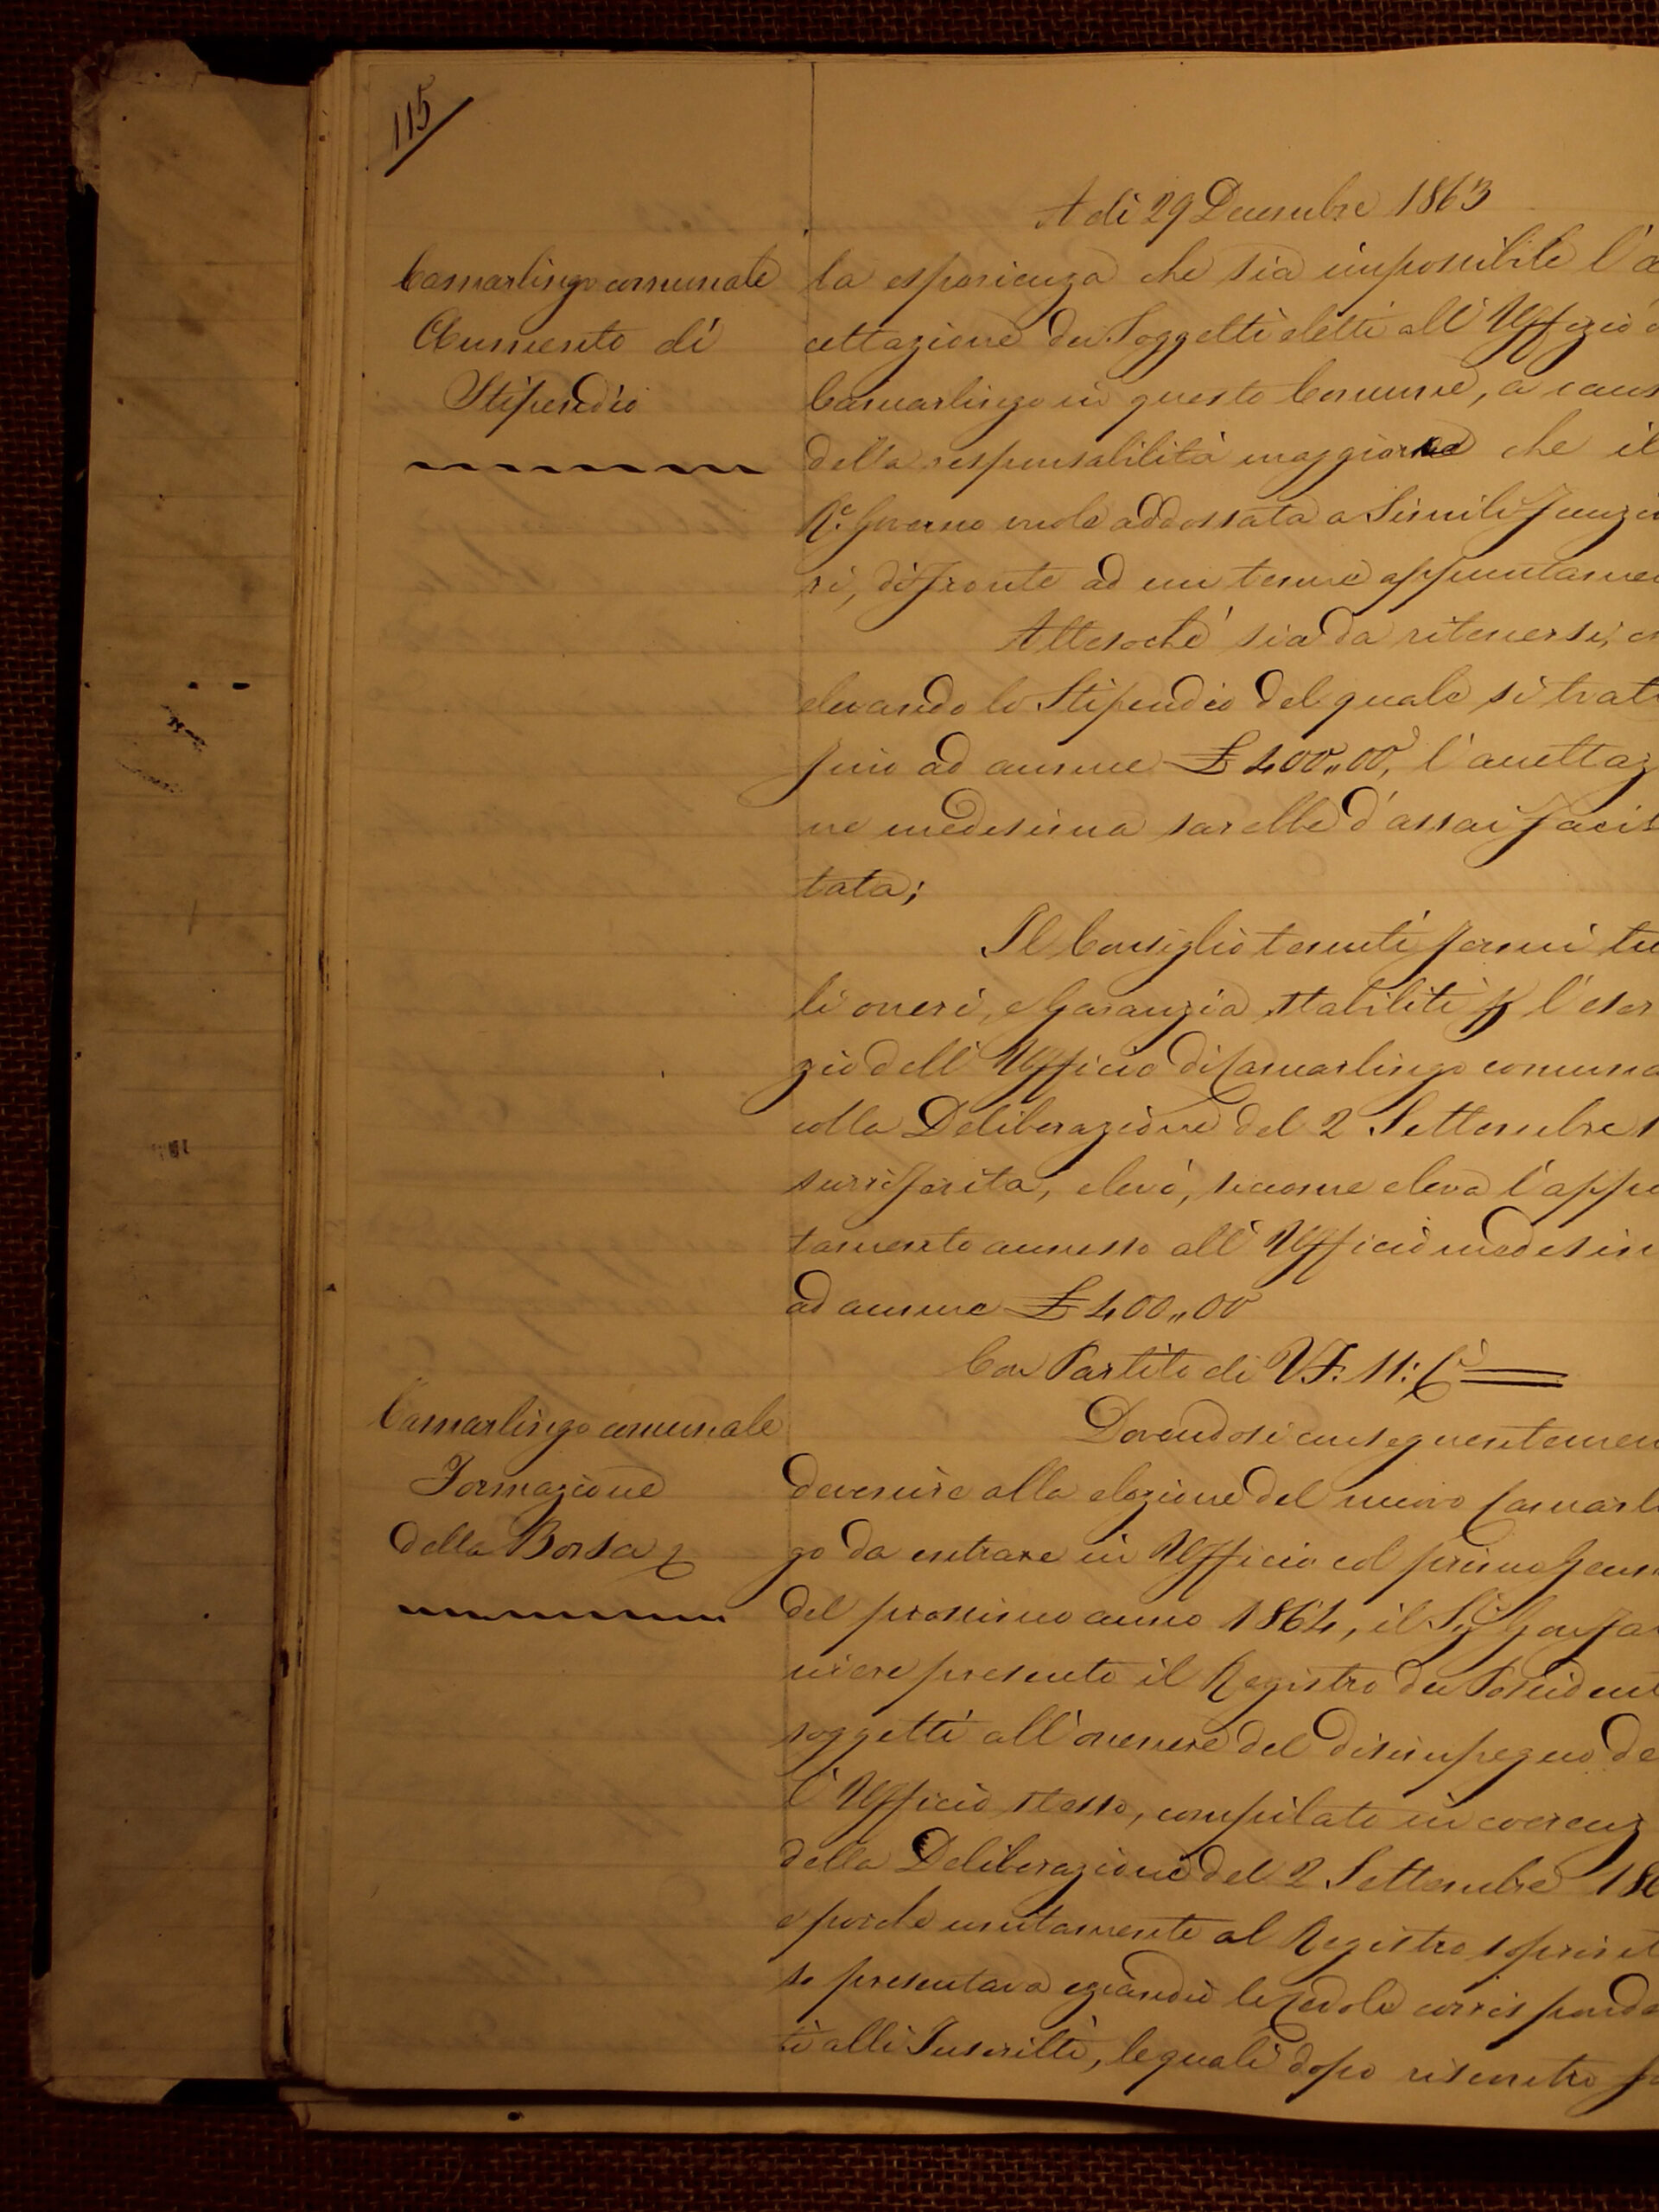 115
A dì 29 Decembre 1863
Camarlingo comunale
Aumento di
Stipendio
la esperienza che sia impossibile l'a
cettazione dei Soggetti eletti all'Uffizio
Camarlingo in questo Comune, a caus
della responsabilità maggiore che il
R.º Governo vuole addossata a Simili Funzio
ri, difronte ad un tenue appuntamen
Attesochè sia da ritenersi, c
elevando lo Stipendio del quale si tratt
fino ad annue £ 400,,00, l'accettaz
ne medesima sarebbe d'assai facil
tata;
Il Consiglio tenuti fermi tu
li oneri, e Garanzia stabiliti p l'eser
zio dell'Ufficio di Camarlingo comuna
colla Deliberazione del 2 Settembre 1
surriferita, elevò, siccome eleva l'appu
tamento annesso all'Ufficio medesim
ad annue £ 400,,00
Con Partito di VF: 11: C
Camarlingo comunale
Formazione
della Borsa
Dovendosi conseguentemen
devenire alla elezione del nuovo Camarli
go da entrare in Ufficio col primo Genn
del prossimo anno 1864, il Sig Gonfa
niere presentò il Registro dei Possident
soggetti all'onere del disimpegno de
l'Ufficio stesso, compilato in coerenz
della Deliberazione del 2 Settembre 186
e poichè unitamente al Registro sopriret
so presentava eziandio le Cedole corrisponde
ti alli Inscritti, le quali dopo riscontro